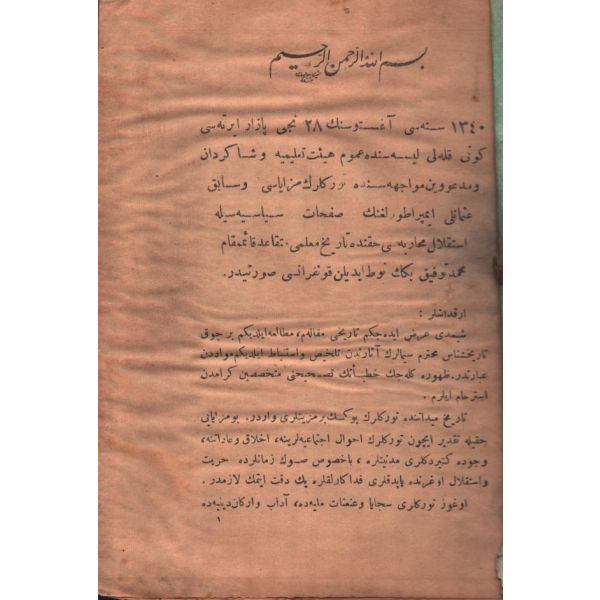 بسم الله الرحمن الرحيم
١٣٤٠ سنه‌سى آغستوسنك ٢٨ نجى پازار ايرته‌سى
كونى قله‌لى ليسه‌سنده عموم هيئت تعليميه وشاكردان
ومدعووين مواجهه‌سنده توركلرك مزاياسى وسابق
عثمانلى ايمپراطورلغنك صفحات سياسيه‌سيله
استقلال محاربه‌سى حقنده تاريخ معلمى متقاعد قائممقام
محمد توفيق بكك نوط ايديلن قونفرانسى صورتيدر.
ارقداشلر:
شيمدى عرض ايده‌جكم تاريخى مقاله‌م، مطالعه ايلديكم برچوق
تاريخشناس محترم سيمالرك آثارندن تلخيص واستنباط ايلديكم مواددن
عبارتدر. ظهوره كله‌جك خطيأتك تصحيحنى متخصصين كرامدن
استرحام ايلرم.
تاريخ ميداننده توركلرك يوكسك بر مزيتلرى واردر. بو مزايايى
حقيله تقدير ايچون توركلرك احوال اجتماعيه‌لرينه، اخلاق وعاداتنه،
وجوده كتيردكلرى مدنيتلره، باخصوص صوك زمانلرده حريت
واستقلال اوغرنده ياپدقلرى فداكارلقلره پك دقت ايتمك لازمدر.
اوغوز توركلرى سجايا وعنعنات مليه‌ده، آداب واركان دينيه‌ده
١